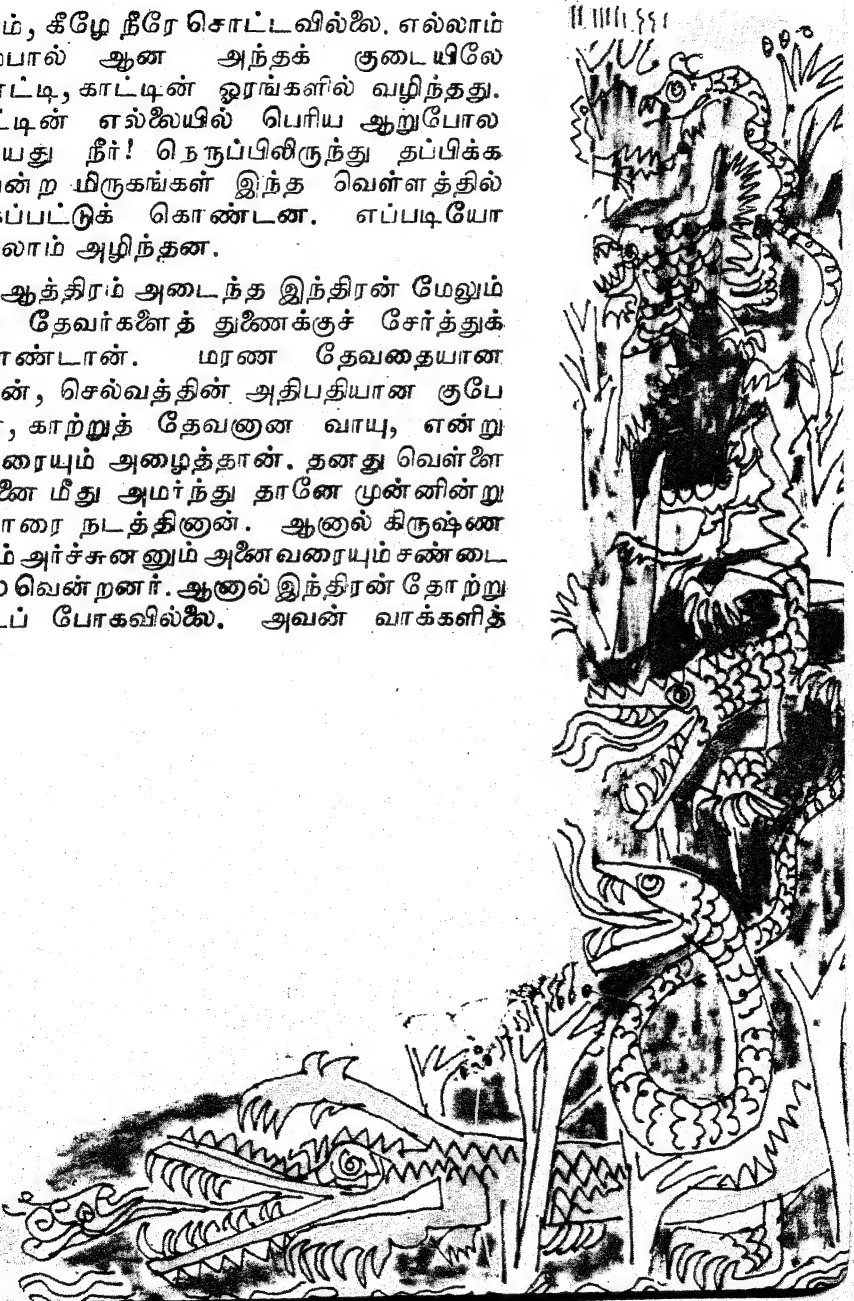 ம், கீழே நீரே சொட்டவில்லை. எல்லாம்
பால் ஆன அந்தக் குடையிலே
ட்டி, காட்டின் ஓரங்களில் வழிந்தது.
ட்டின் எல்லையில் பெரிய ஆறுபோல
யது நீர்! நெருப்பிலிருந்து தப்பிக்க
ன்ற மிருகங்கள் இந்த வெள்ளத்தில்
கப்பட்டுக் கொண்டன. எப்படியோ
லாம் அழிந்தன.
ஆத்திரம் அடைந்த இந்திரன் மேலும்
தேவர்களைத் துணைக்குச் சேர்த்துக்
ாண்டான். மரண தேவதையான
ன், செல்வத்தின் அதிபதியான குபே
, காற்றுத் தேவனான வாயு, என்று
ரையும் அழைத்தான். தனது வெள்ளை
னை மீது அமர்ந்து தானே முன்னின்று
ாரை நடத்தினான். ஆனால் கிருஷ்ண
ம் அர்ச்சுனனும் அனைவரையும் சண்டை
வென்றனர். ஆனால் இந்திரன் தோற்று
டப் போகவில்லை. அவன் வாக்களித்